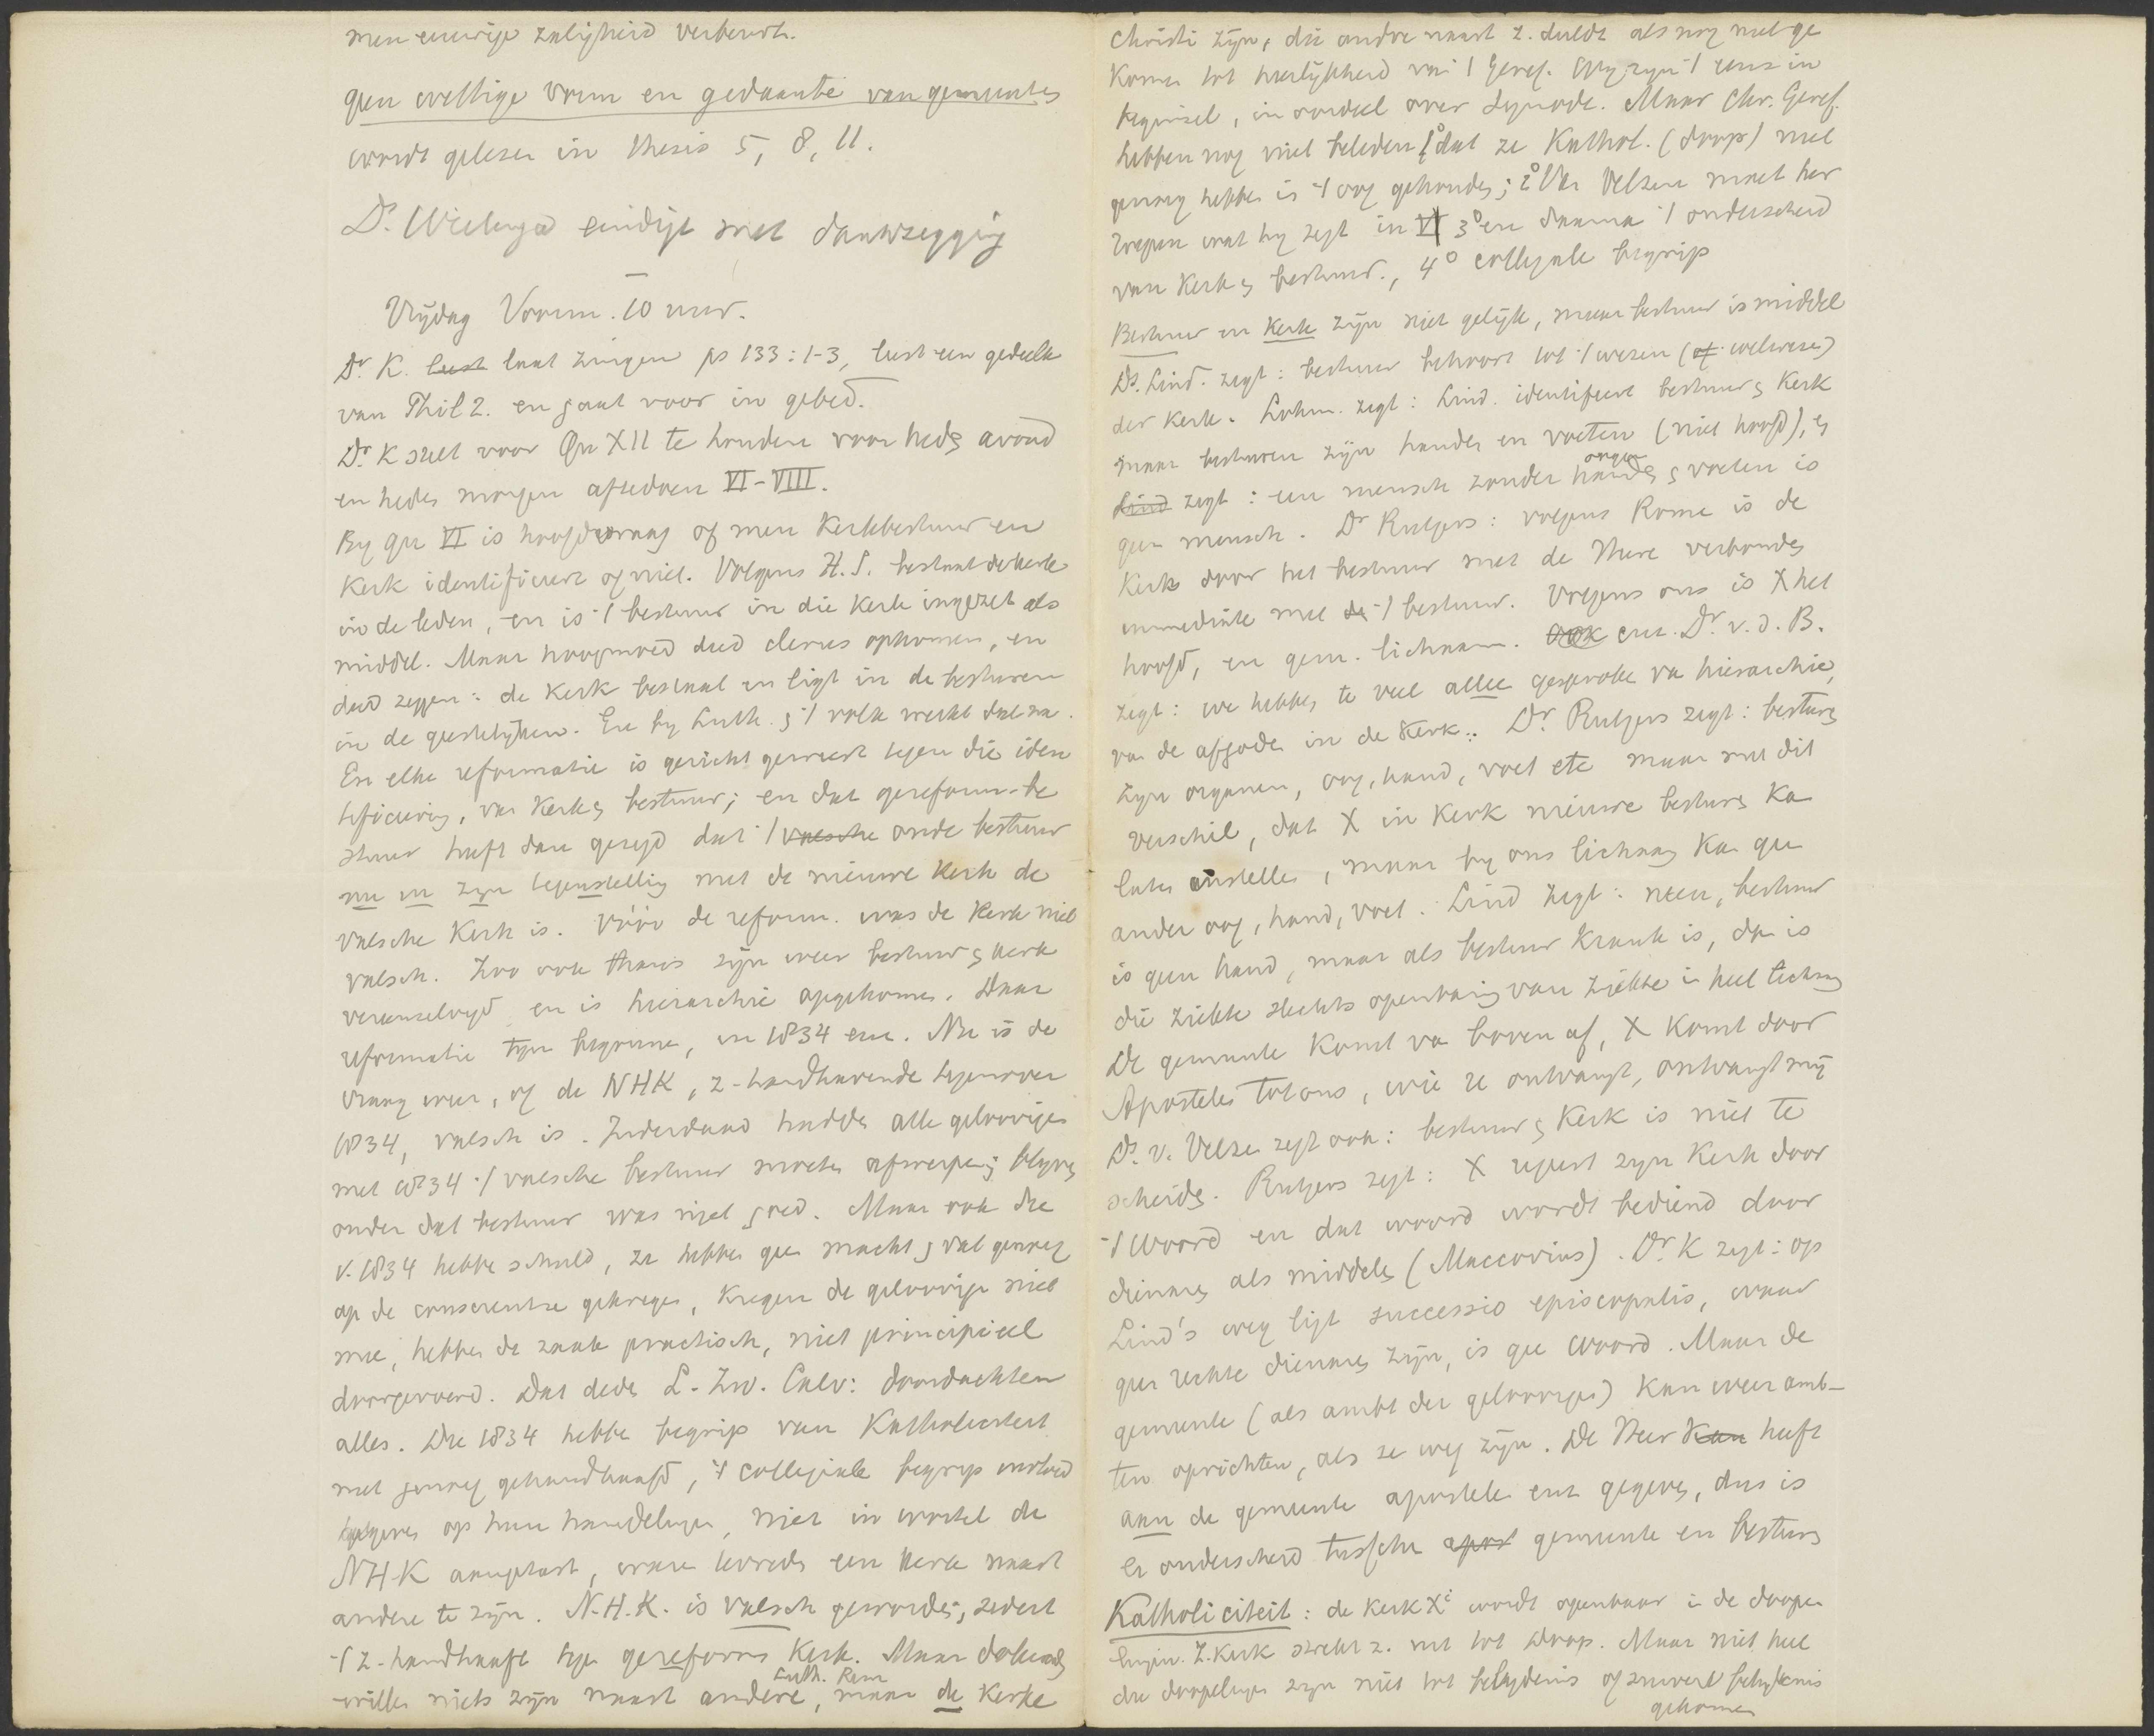 men eeuwige zaligheid verbeurt.
geen wettige vorm en gedaante van gemeentes
wordt gelezen in thesis 5, 8, 11.
Ds. Wielenga eindigt met dankzegging
—
Vrijdag Voorm. 10 uur.
Dr K. leest laat zingen ps 133:1-3, leest een gedeelte
van Phil 2. en gaat voor in gebed.
Dr K stelt voor Qu XII te houden voor heds avond
en heden morgen aftedoen VI-VIII.
By qu VI is hoofdvraag of men Kerkbestuur en
Kerk identificeert of niet. Volgens H.S. bestaat de kerk
in de leden, en is 't bestuur in die Kerk ingezet als
middel. Maar hoogmoed deed clerus opkomen, en
deed zeggen: de Kerk bestaat en ligt in de besturen
in de geestelijken. En by Luth. & 't volk werkt dat na.
En elke reformatie is gericht geweest tegen die iden
tificering, van Kerk & bestuur; en dat gereform. be
stuur heeft dan gezegd dat 't valsche oude bestuur
nu in zyn tegenstelling met de nieuwe Kerk de
valsche Kerk is. Vóór de reform. was de Kerk niet
valsch. Zoo ook thans zijn weer bestuur & Kerk
vereenzelvigd en is hierarchie opgekomen. Daar
reformatie tegen begonnen, in 1834 enz. Nu is de
vraag weer, of de NHK, z-handhavende tegenover
1834, valsch is. Inderdaad hadden alle geloovigen
met 1834 't valsche bestuur moeten afwerpen; blyven
onder dat bestuur was niet goed. Maar ook die
v. 1834 hebben schuld, ze hebben geen macht & vat genoeg
op de conscientie gekregen, kregen de geloovige niet
mee, hebben de zaak practisch, niet principieel
doorgevoerd. Dat deden L. Zw. Calv: doordachten
alles. Die 1834 hebben begrip van Katholiciteit
niet genoeg gehandhaafd, 't collegiale begrip invloed
gegeven op hun handelingen, niet in wortel de
NHK aangetast, waren tevreden een kerk naast
andere te zijn. N.H.K. is valsch geworden, zedert
't z-handhaaft tegen gereform Kerk. Maar doleerend
willen niets zijn naast andere, Luth. Rom maar de Kerke
Christi zijn, die andre naast z. duldt als nog niet ge
komen tot heerlijkheid van 't Geref. Wy zyn 't eens in
beginsel, in oordeel over Synode. Maar Chr. Geref.
hebben nog niet beleden 1° dat ze Kathol. (doop) niet
genoeg hebben in 't oog gehouden; 2° Van Velzen moet her
roepen wat hy zegt in VI 3° en daarna 't onderscheid
van Kerk & bestuur., 4° collegiale begrip
Bestuur en Kerk zijn niet gelijk, maar bestuur is middel
Ds. Lind. zegt: bestuur behoort tot 't wezen (of welwezen)
der Kerk. Lohm. zegt: Lind. identifieert bestuur & Kerk
maar besturen zijn handen en voeten (niet hoofd), &
Lind zegt: een mensch zonder organ handen & voeten is
geen mensch. Dr Rutgers: volgens Rome is de
Kerk door het bestuur met de Heere verbonden
immediate met de 't bestuur. Volgens ons is X het
hoofd, en gem. lichaam. Ook enz. Dr. v. d. B.
zegt: we hebben te veel alleen gesproken van hierarchie,
van de afgoden in de Kerk.. Dr Rutgers zegt: besturen
zijn organen, oog, hand, voet etc maar met dit
verschil, dat X in Kerk nieuwe besturen ka
laten instellen, maar by ons lichaam ka gee
ander oog, hand, voet. Lind zegt: neen, bestuur
is geen hand, maar als bestuur krank is, da is
die ziekte slechts openbaring van ziekte in heel licham
De gemeente komt va boven af, X komt door
Apostelen tot ons, wie ze ontvangt, ontvangt mij
Ds. v. Velzen zegt ook: bestuur & Kerk is niet te
scheiden. Rutgers zegt: X regeert zyn Kerk door
't Woord en dat woord wordt bediend door
dienaren als middelen (Maccovius). Dr K zegt: op
Lind's weg ligt successio episcopalis, waar
geen rechte dienaren zijn, is gee Woord. Maar de
gemeente (als ambt der geloovigen) kan weer amb-
ten oprichten, als ze weg zijn. De Heer kan heeft
aan de gemeente apostelen enz gegeven, dus is
er onderscheid tusschen apost gemeente en besturen
Katholiciteit: de Kerk Xi wordt openbaar in de doope
lingen. Z. Kerk strekt z. uit tot doop. Maar niet heel
die doopelingen zijn niet tot belydenis of zuivere belydenis
gekomen